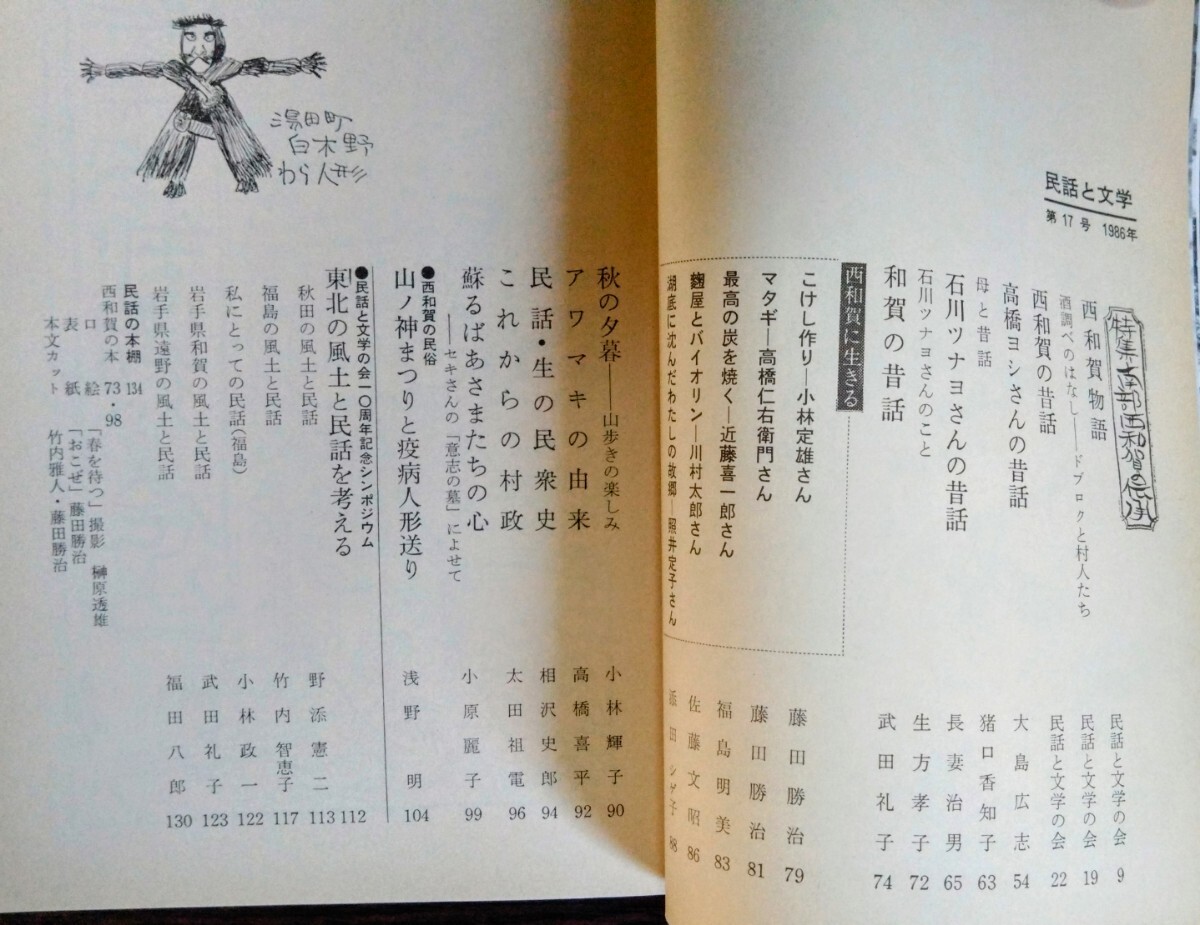 民話と文学
第17号 1986年
特集 南部西和賀の伝承
西和賀物語 民話と文学の会 9
酒調べのはなし――ドブロクと村人たち 民話と文学の会 19
西和賀の昔話 民話と文学の会 22
高橋ヨシさんの昔話 大島広志 54
母と昔話 猪口香知子 63
石川ツナヨさんの昔話 長妻治男 65
石川ツナヨさんのこと 生方孝子 72
和賀の昔話 武田礼子 74
西和賀に生きる
こけし作り―小林定雄さん 藤田勝治 79
マタギ―高橋仁右衛門さん 藤田勝治 81
最高の炭を焼く―近藤喜一郎さん 福島明美 83
麹屋とバイオリン―川村太郎さん 佐藤文昭 86
湖底に沈んだわたしの故郷―照井定子さん 田シゲ子 88
秋の夕暮――山歩きの楽しみ 小林輝子 90
アワマキの由来 高橋喜平 92
民話・生の民衆史 相沢史郎 94
これからの村政 太田祖電 96
蘇るばあさまたちの心
――セキさんの「意志の墓」によせて 小原麗子 99
●西和賀の民俗
山ノ神まつりと疫病人形送り 浅野明 104
●民話と文学の会一〇周年記念シンポジウム
東北の風土と民話を考える 112
秋田の風土と民話 野添憲二 113
福島の風土と民話 竹内智恵子 117
私にとっての民話(福島) 小林政一 122
岩手県和賀の風土と民話 武田礼子 123
岩手県遠野の風土と民話 福田八郎 130
民話の本棚 134
西和賀の本 73・98
口絵 「春を待つ」撮影 榊原透雄
表紙 「おこぜ」藤田勝治
本文カット 竹内雅人・藤田勝治
湯田町
白木野
わら人形